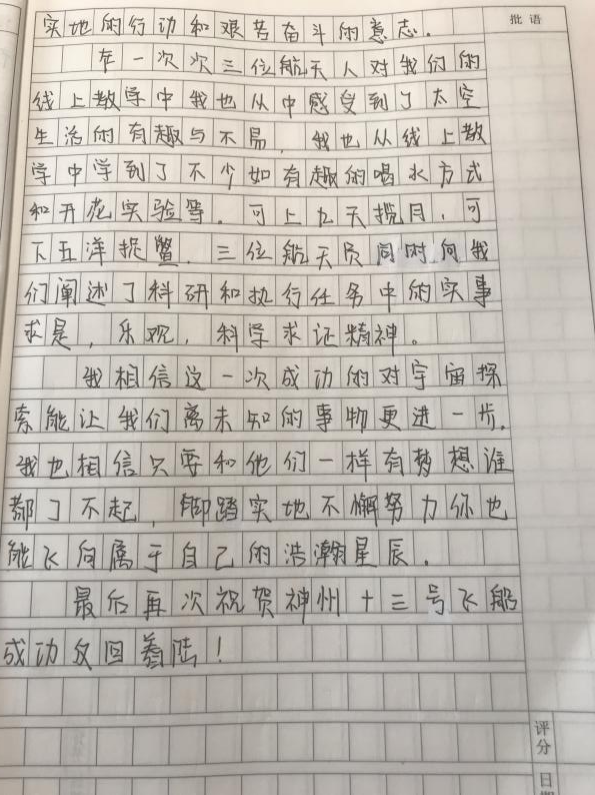 批语
实地的行动和艰苦奋斗的意志.
在一次次三位航天人对我们的
线上教学中我也从中感受到了太空
生活的有趣与不易，我也从线上教
学中学到了不少如有趣的喝水方式
和开花实验等.可上九天揽月,可
下五洋捉鳖.三位航天员同时向我
们阐述了科研和执行任务中的实事
求是,乐观,科学求证精神。
我相信这一次成功的对宇宙探
索能让我们离未知的事物更进一步.
我也相信只要和他们一样有梦想谁
都了不起,脚踏实地不懈努力你也
能飞向属于自己的浩瀚星辰.
最后再次祝贺神州十三号飞船
成功反回着陆!
评分
日